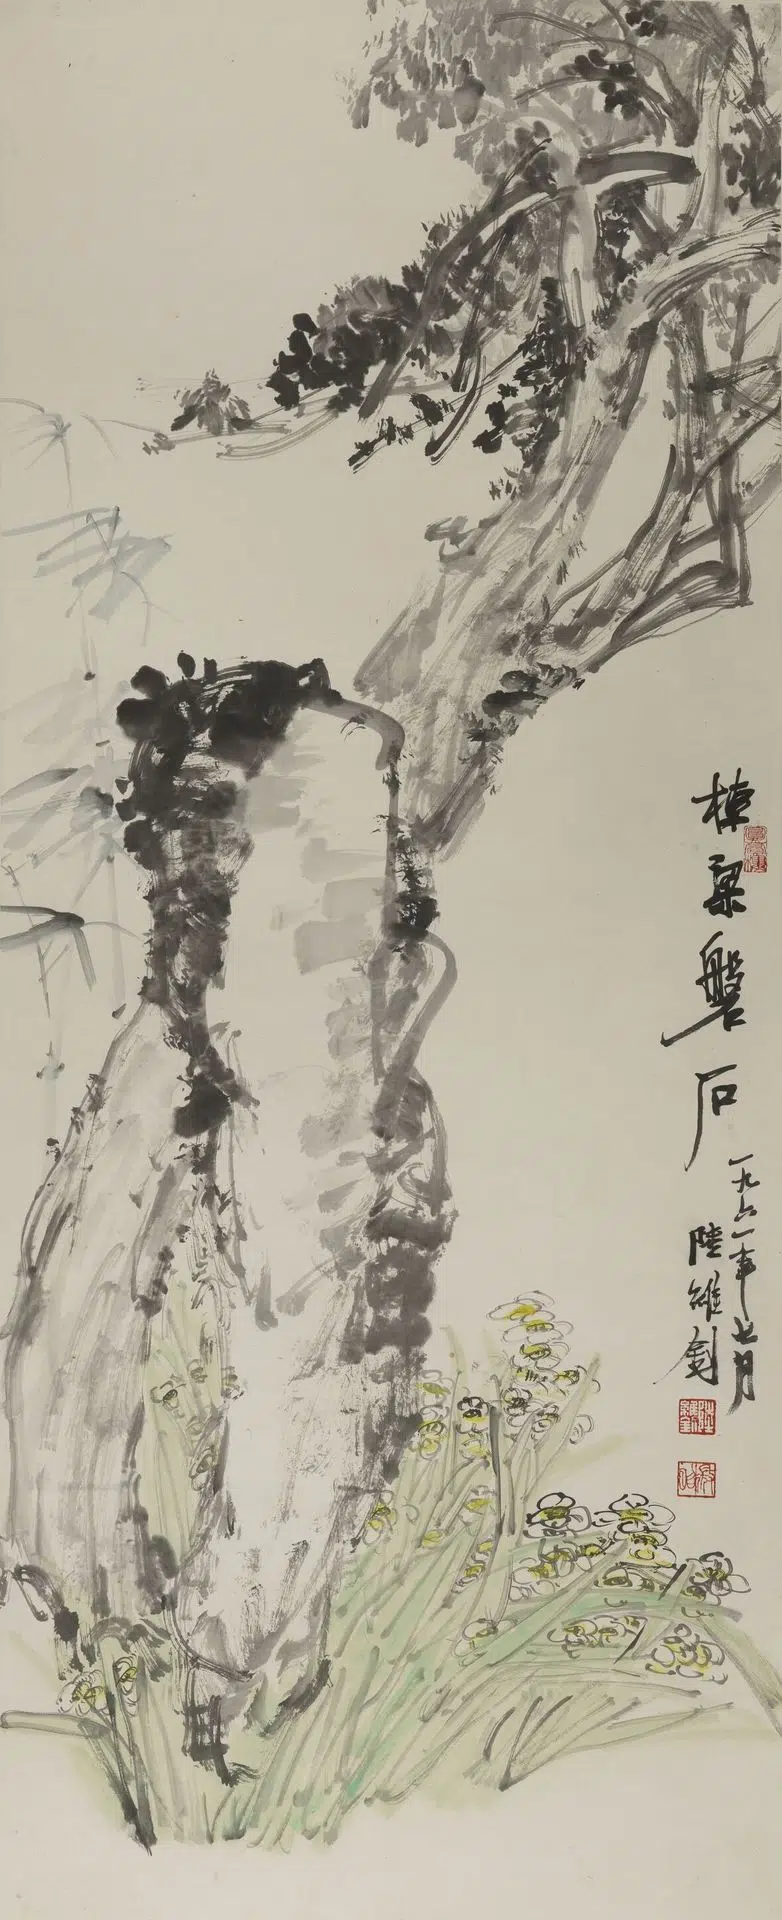 棟梁磐石
一九六一年七月
陸維釗
陸維釗